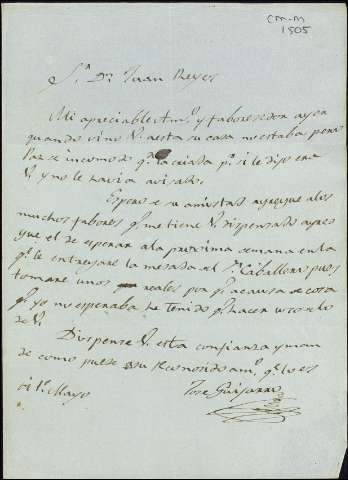 CM-M
1505
S.r D.n Juan Reyes
Mi apreciable Am.o y faboresedor ayer
quando vino V. a esta su casa no estaba pero
Paz se incomodo q.e la criada p.r si le dijo era
V. y no le havia avisado.
Espero de su amistad agregue a los
muchos fabores q.e me tiene V. dispensado agre
gue el de esperar a la proxima semana en la
q.e le entregare la mesada al S.r Caballero pues
tomare unos reales por q.e a causa de cosa
q.e yo no esperaba he tenido q.e hacer uso de lo
de V.
Dispense V. esta confianza y man
de como puede a su reconosido am.o q.e lo es
oi 1.o Mayo
Jose Guijarro